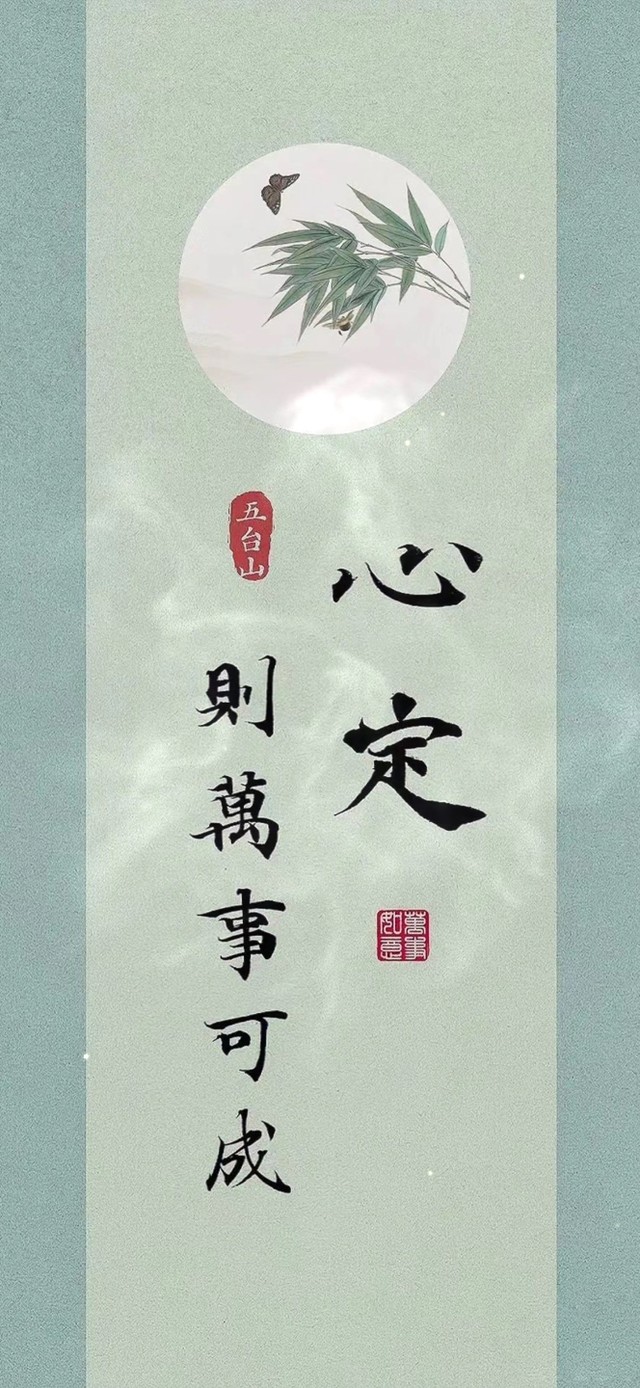 心定
萬事如意
五台山
則萬事可成